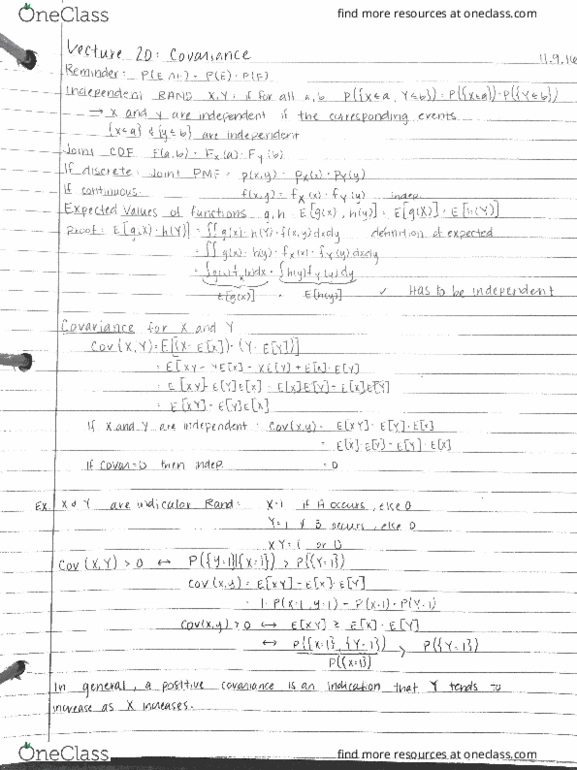 OneClass
find more resources at oneclass.com
Lecture 20: Covariance 11.9.16
Reminder: P(E ∩ F) = P(E) · P(F)
Independent RAND X, Y: if for all a, b P({X≤a, Y≤b}) = P({X≤a}) · P({Y≤b})
→ X and Y are independent if the corresponding events
{X≤a} & {Y≤b} are independent
Joint CDF F(a,b) = Fx(a) · FY(b)
If discrete: Joint PMF: p(x,y) = px(x) · pY(y)
If continuous: f(x,y) = fx(x) · fY(y) indep.
Expected Values of functions g, h: E[g(X), h(Y)] = E[g(X)] · E[h(Y)]
Proof: E[g(X) · h(Y)] = ∫∫ g(x) · h(y) · f(x,y) dxdy definition of expected
= ∫∫ g(x) · h(y) · fx(x) · fY(y) dxdy
= ∫g(x) fx(x)dx · ∫h(y) fY(y) dy
E[g(x)] · E[h(y)] ✓ Has to be independent
Covariance for X and Y
Cov(X,Y) = E[(X - E[X]) · (Y - E[Y])]
= E[XY - YE[X] - XE[Y] + E[X] · E[Y]
= E[XY] - E[Y]E[X] - E[X]E[Y] + E[X]E[Y]
= E[XY] - E[Y]E[X]
If X and Y are independent: Cov(x,y) = E[XY] - E[Y] · E[X]
= E[X] · E[Y] - E[Y] · E[X]
If Covar = 0 then indep. = 0
Ex X & Y are indicator Rand: X=1 if A occurs, else 0
Y=1 if B occurs, else 0
XY = 1 or 0
Cov(X,Y) > 0 ↔ P({Y=1}|{X=1}) > P({Y=1})
Cov(x,y) = E[XY] - E[X] · E[Y]
= 1 · P(X=1, Y=1) - P(X=1) · P(Y=1)
Cov(x,y) > 0 ↔ E[XY] ≥ E[X] · E[Y]
↔ P({X=1}, {Y=1}) > P({Y=1})
P({X=1})
In general, a positive covariance is an indication that Y tends to
increase as X increases.
OneClass
find more resources at oneclass.com